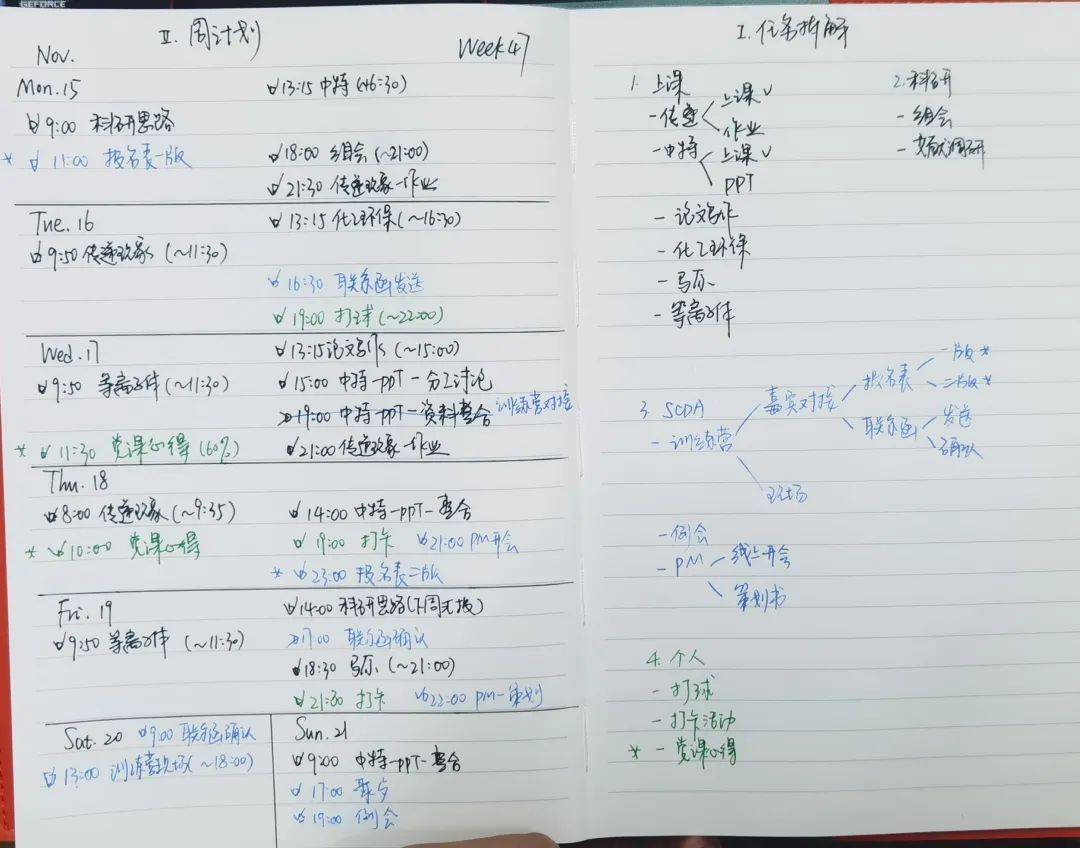 GEFORCE
II. 周计划
Nov.
Week 47
Mon. 15
13:15 中特 (~16:30)
9:00 科研思路
* 11:00 报名表一版
18:00 组会 (~21:00)
21:30 传递现象-作业
Tue. 16
13:15 化工环保 (~16:30)
9:50 传递现象 (~11:30)
16:30 联系函发送
19:00 打球 (~22:00)
Wed. 17
13:15 论文写作 (~15:00)
9:50 等离子体 (~11:30)
15:00 中特-ppt-分工讨论
19:00 中特-ppt-资料整合 训练营对接
* 11:30 党课心得 (60%)
21:00 传递现象-作业
Thu. 18
8:00 传递现象 (~9:35)
14:00 中特-ppt-整合
* 10:00 党课心得
19:00 打卡
21:00 PM开会
* 23:00 报名表二版
Fri. 19
14:00 科研思路(下周汇报)
9:50 等离子体 (~11:30)
17:00 联系函确认
18:30 马原 (~21:00)
21:30 打卡
22:00 pm-策划
Sat. 20
9:00 联系函确认
13:00 训练营现场 (~18:00)
Sun. 21
9:00 中特-ppt-整合
17:00
19:00 例会
I. 任务拆解
1. 上课
- 传递
上课 √
作业
- 中特
上课 √
PPT
- 论文写作
- 化工环保
- 马原
- 等离子体
2. 科研
- 组会
- 文献调研
3. SCDA
- 训练营
嘉宾对接
报名表
一版 *
二版 *
联系函
发送
确认
现场
- 例会
- PM
线上开会
策划书
4. 个人
- 打球
- 打卡活动
* - 党课心得